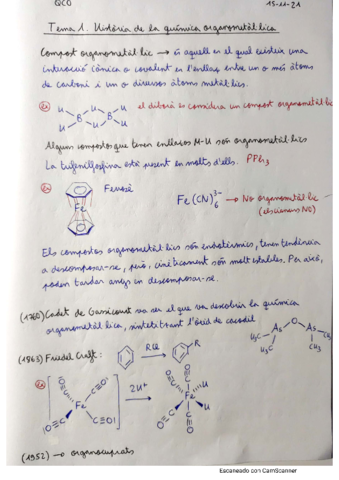 QCO 15-11-21
Tema 1. Història de la química organometàl·lica
Compost organometàl·lic → és aquell en el qual existeix una
interacció iònica o covalent en l'enllaç entre un o més àtoms
de carboni i un o diversos àtoms metàl·lics.
Ex H H H B B H H H el diborà es considera un compost organometàl·lic
Alguns compostos que tenen enllaços M-H són organometàl·lics
La trifenilfosfina està present en molts d'ells. PPh3
Ex Fe Ferrocè Fe(CN)6 3- → No organometàl·lic
(els cianurs NO)
Els compostos organometàl·lics són endotèrmics, tenen tendència
a descomposar-se, però, cinèticament són molt estables. Per això,
poden tardar anys en descomposar-se.
(1760) Cadet de Gassicourt va ser el que va descobrir la química
organometàl·lica, sintetitzant l'òxid de cacodil
H3C H3C As O As CH3 CH3
(1863) Friedel Craft: RCl R
Ex Fe 2H+ Fe H H
(1952) → organocuprats
Escaneado con CamScanner